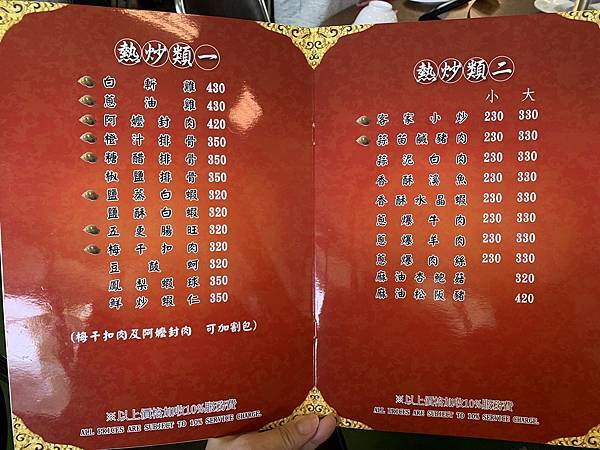 熱炒類一
白斬雞 430
蔥油雞 430
阿嬤封肉 420
橙汁排骨 350
糖醋排骨 350
椒鹽排骨 350
鹽蒸白蝦 320
鹽酥白蝦 320
五更腸旺 320
梅干扣肉 320
豆豉蚵 320
鳳梨蝦球 350
鮮炒蝦仁 350
(梅干扣肉及阿嬤封肉 可加割包)
※以上價格加收10%服務費
ALL PRICES ARE SUBJECT TO 10% SERVICE CHARGE.
熱炒類二
小 大
客家小炒 230 330
蒜苗鹹豬肉 230 330
蒜泥白肉 230 330
香酥溪魚 230 330
香酥水晶蝦 230 330
蔥爆牛肉 230 330
蔥爆羊肉 230 330
蔥爆肉絲 230 330
麻油杏鮑菇 320
麻油松阪豬 420
※以上價格加收10%服務費
ALL PRICES ARE SUBJECT TO 10% SERVICE CHARGE.